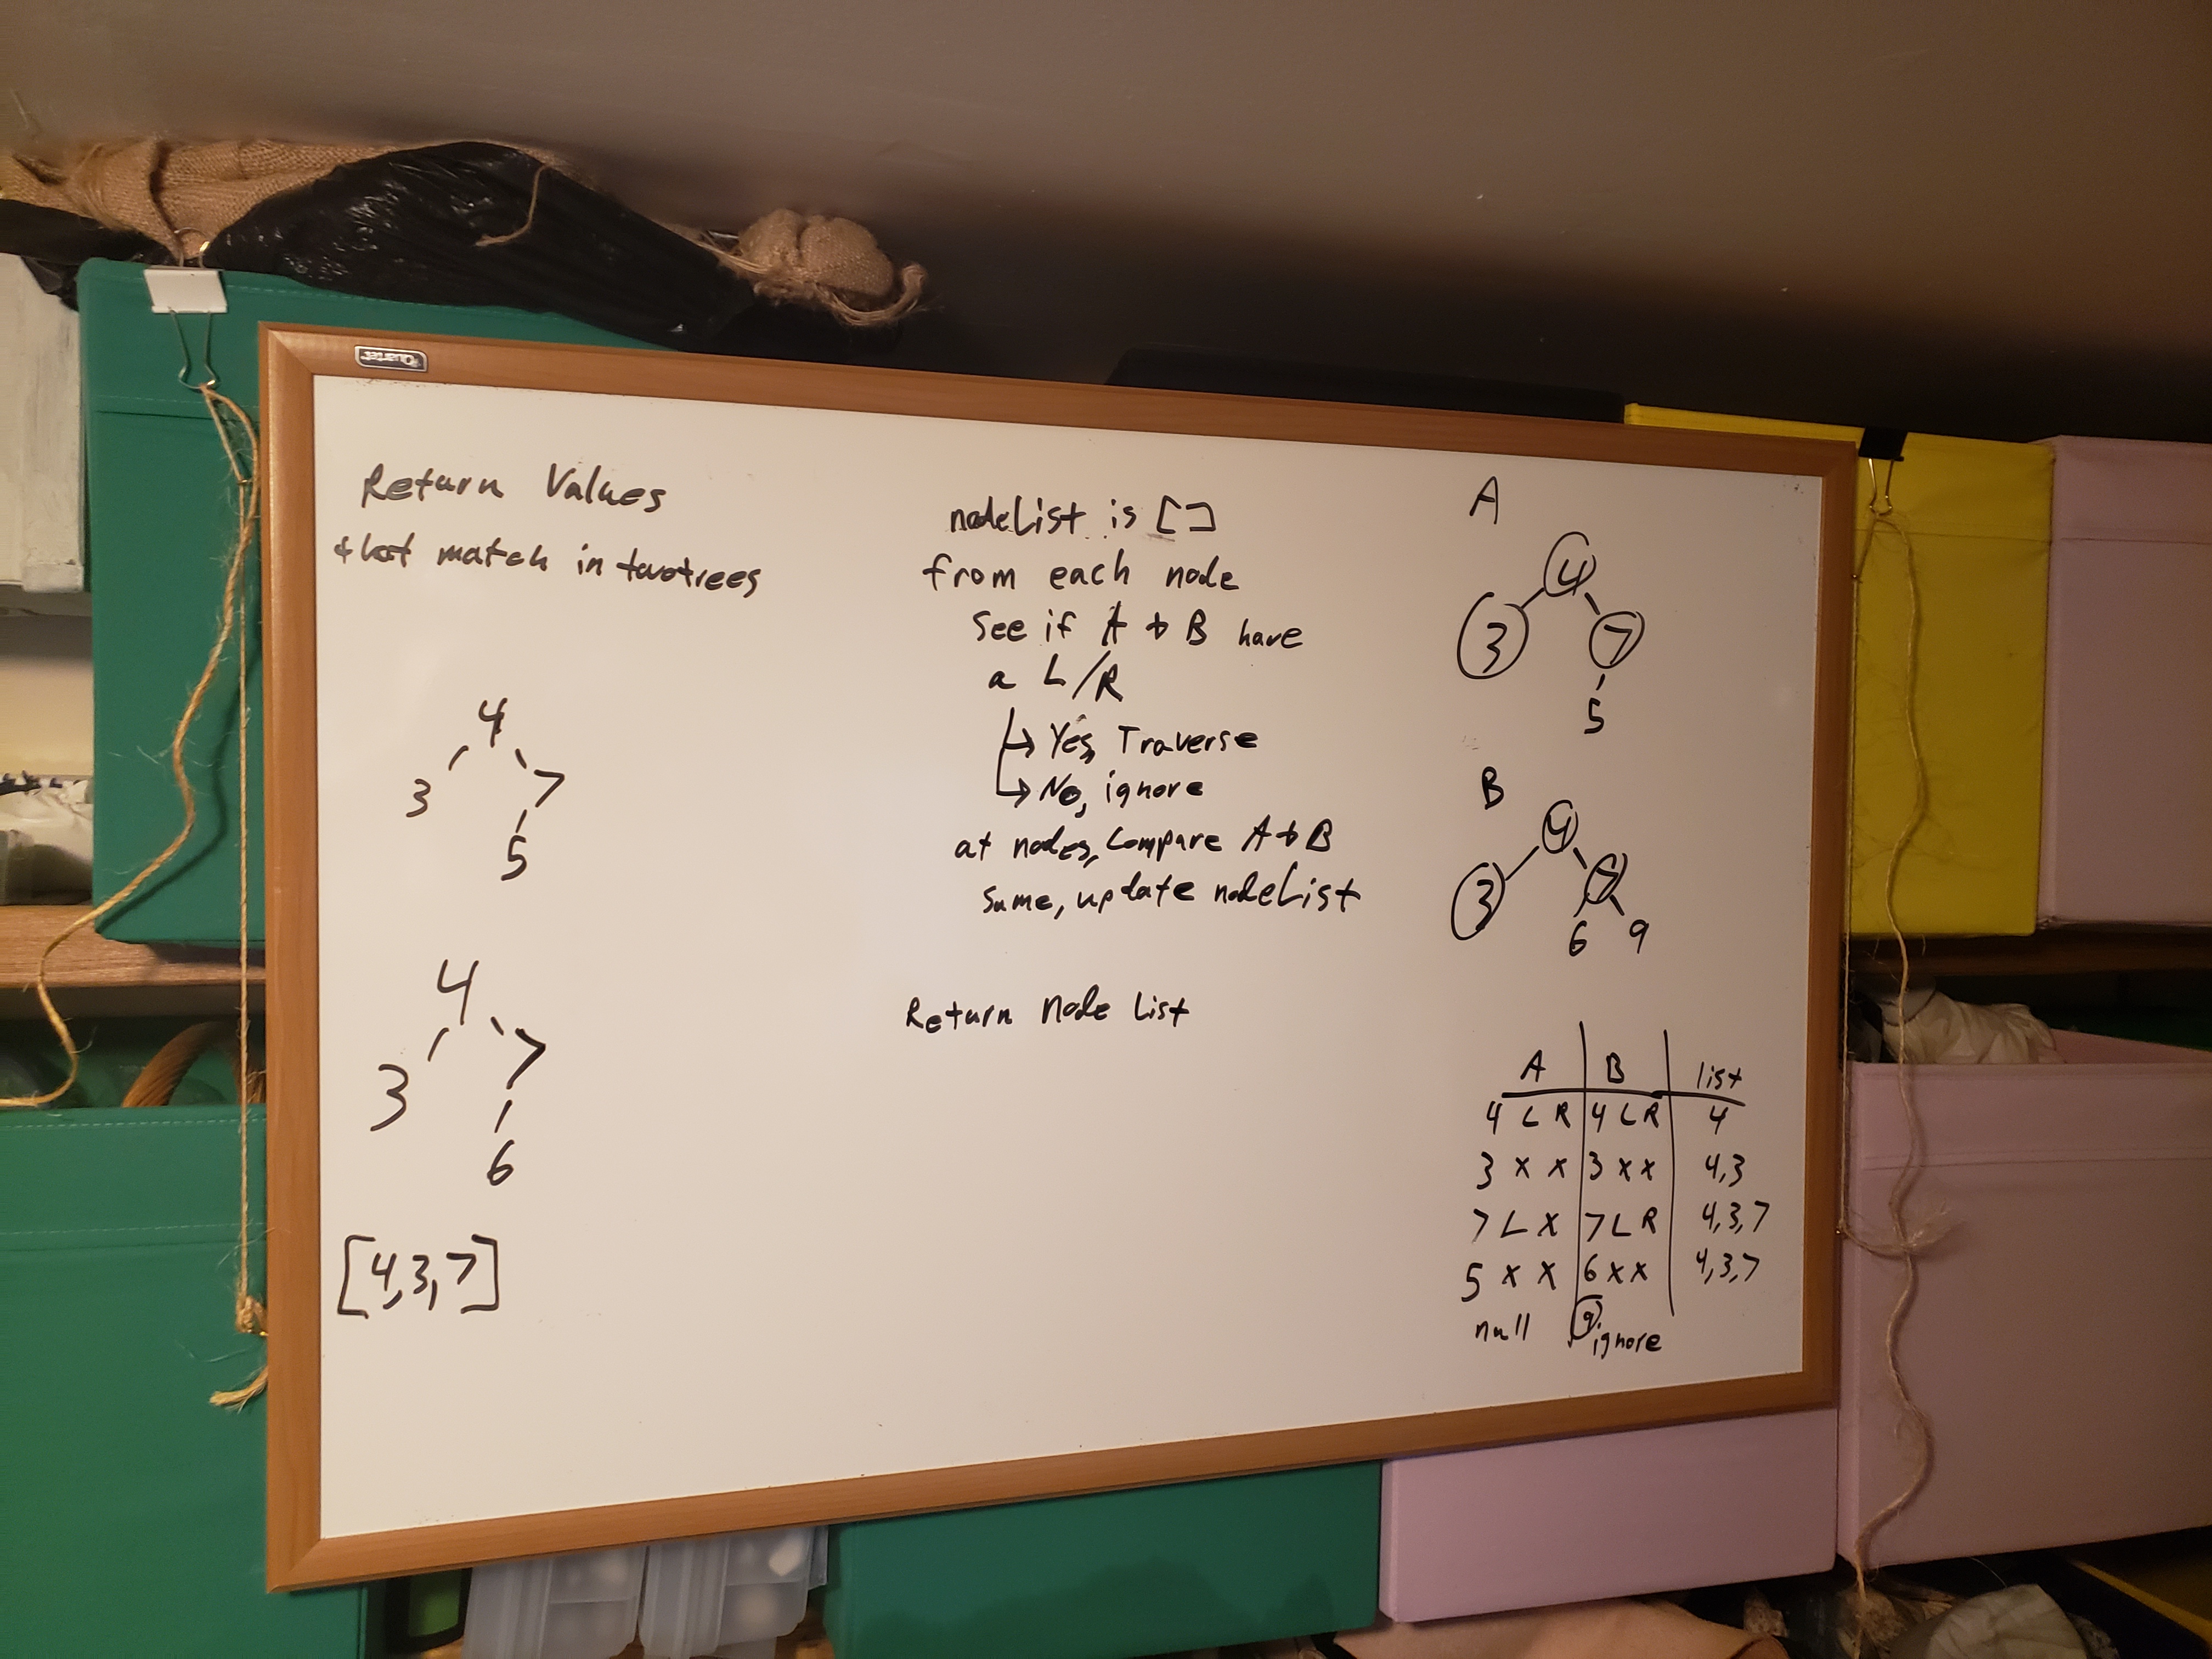 Quartet
Return Values
that match in two trees
4
3 7
5
4
3 7
6
[4,3,7]
nodeList is []
from each node
see if A + B have
a L/R
↳ Yes, Traverse
↳ No, ignore
at nodes, compare A + B
same, update nodeList
Return Node List
A
4
3 7
5
B
4
3 7
6 9
A B list
4 L R 4 L R 4
3 x x 3 x x 4,3
7 L x 7 L R 4,3,7
5 x x 6 x x 4,3,7
null 9 ignore